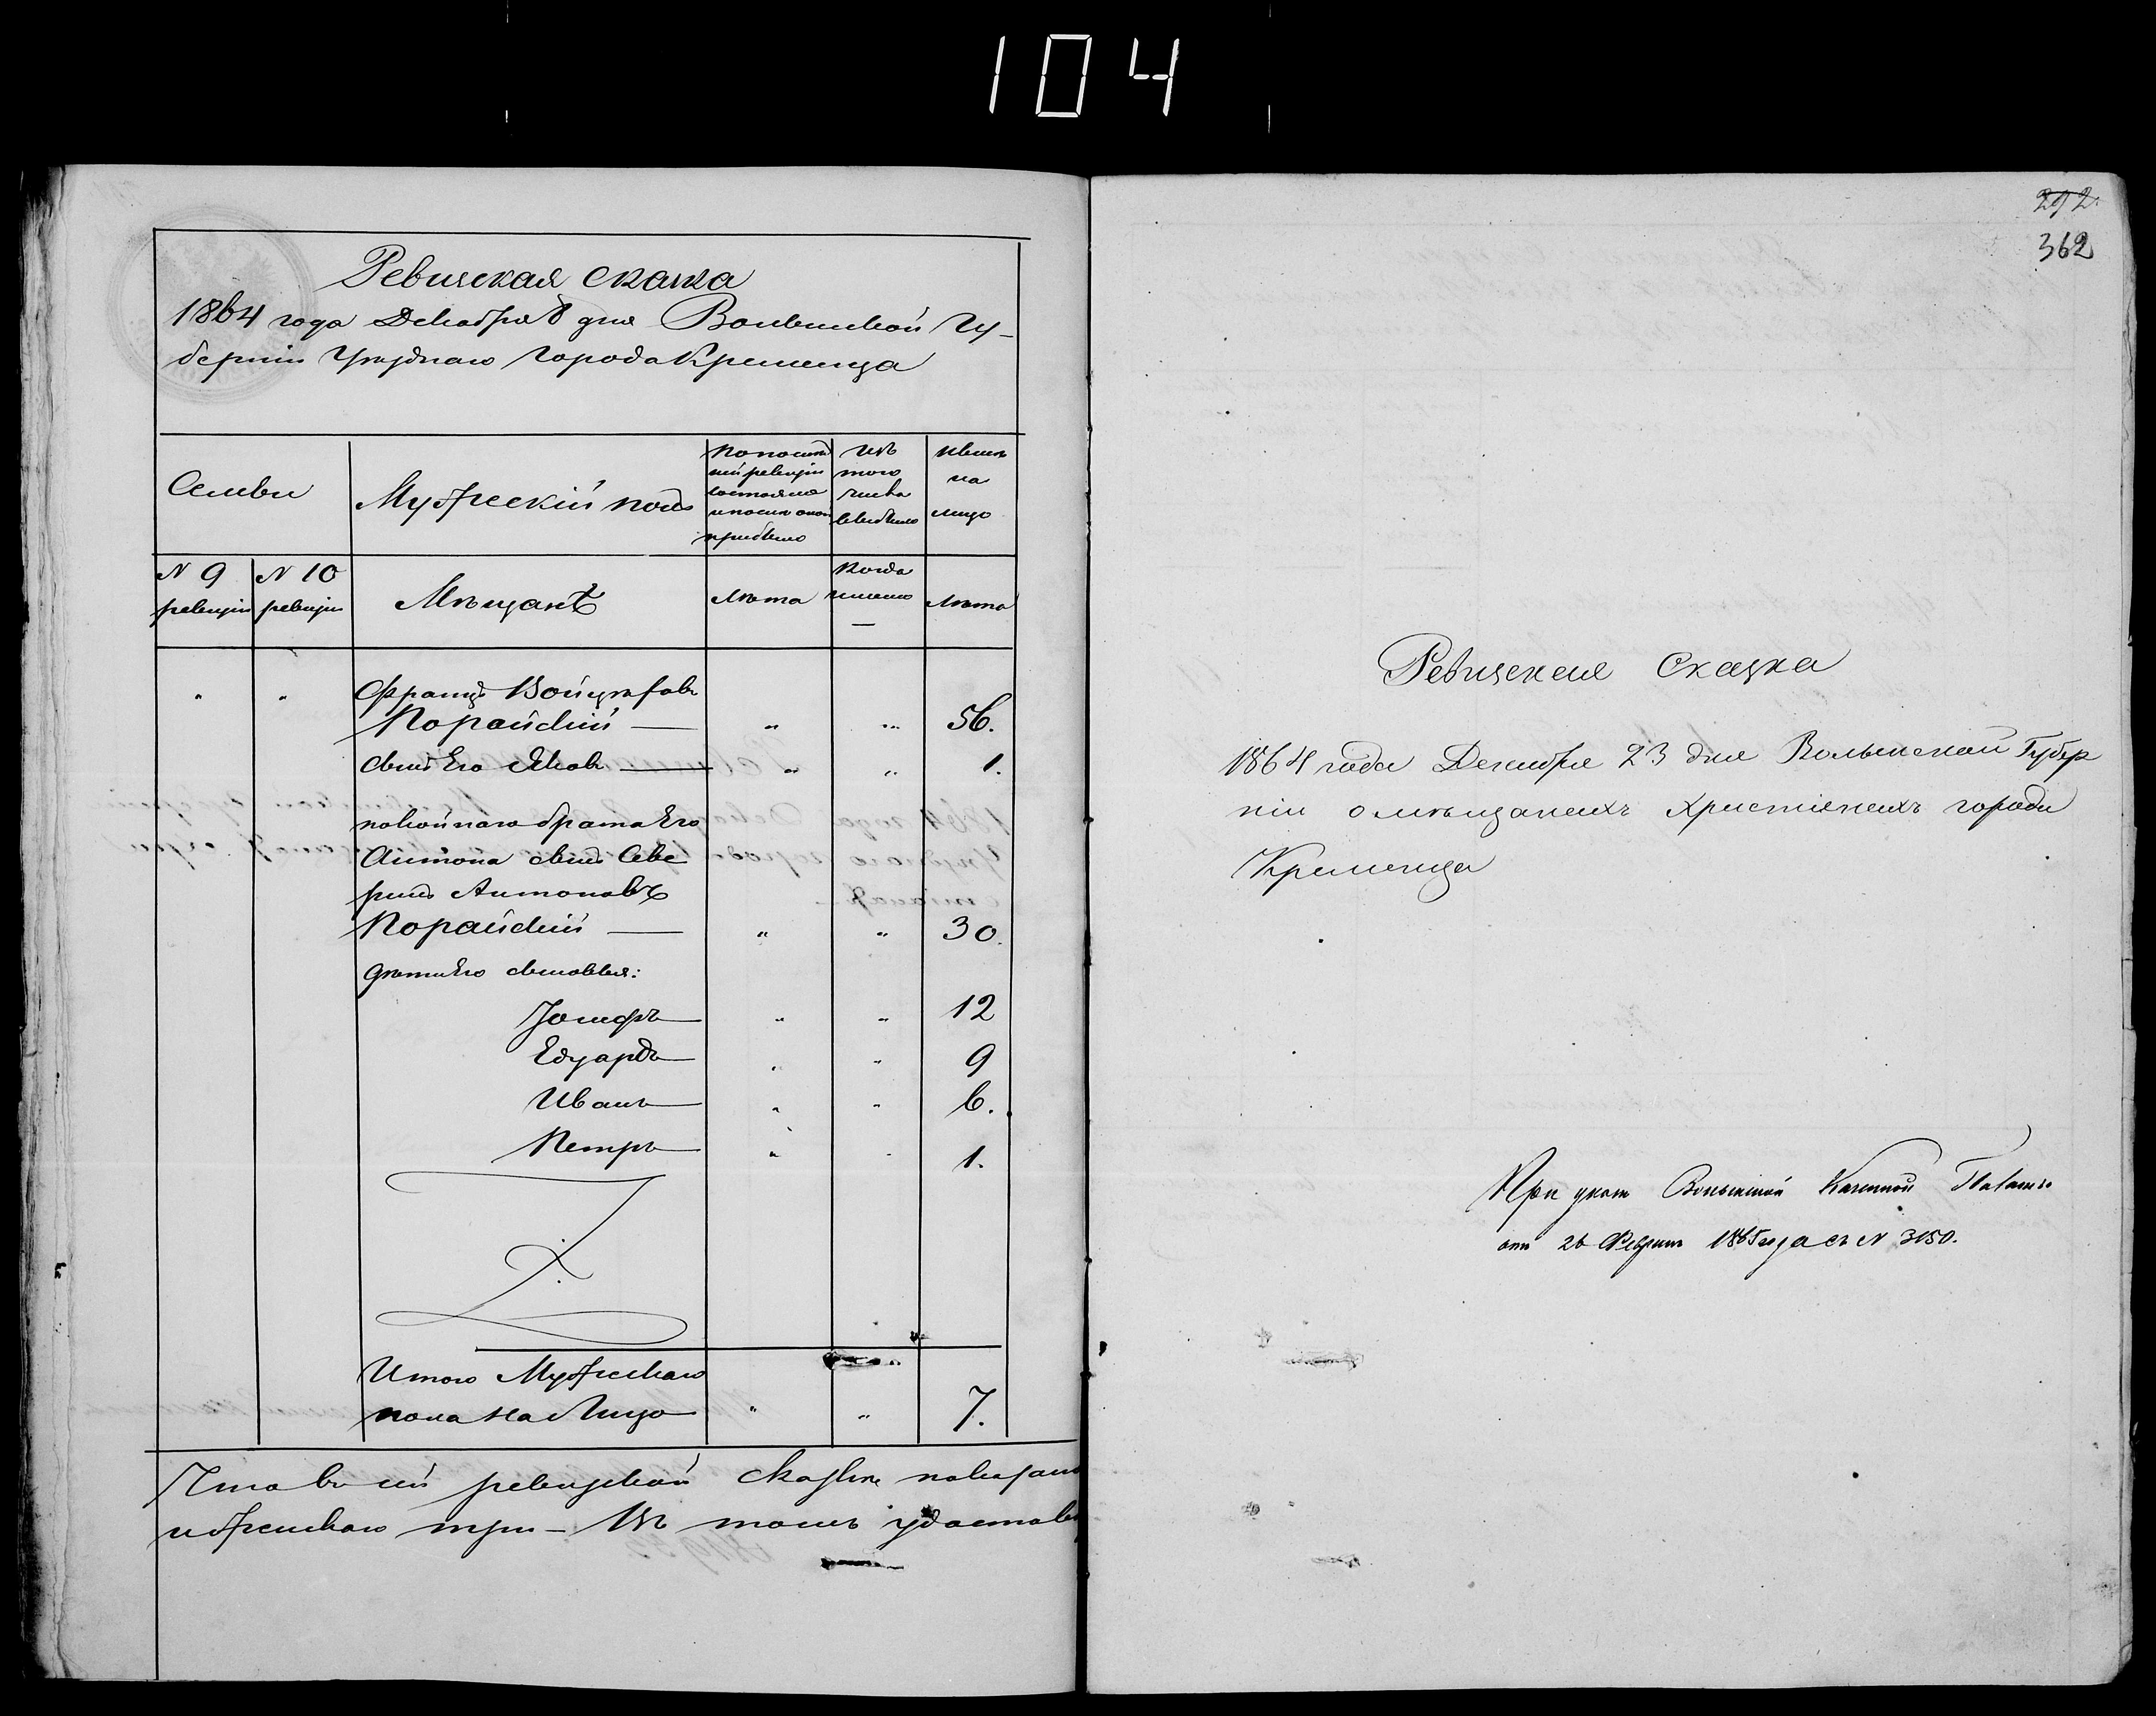 104
Ревизская сказка
1864 года Декабря 8 дня Волынской Гу-
берніи Уѣзднаго города Кременца
Семьи
Мужескій полъ
По послѣд
ней ревизіи
состояло
и послѣ оной
прибыло
Изъ
того
числа
выбыло
Нынѣ
на
лицо
N 9
ревизіи
N 10
ревизіи
Мѣщанѣ
Лѣта
Когда
именно
Лѣта
Францъ Войцѣховъ
Порайскій — " " 56.
сынъ Его Яковъ — " " 1.
покойнаго брата Его
Антона сынъ Севе
ринъ Антоновъ
Порайскій — " " 30.
дѣти Его сыновья:
Іосифъ — " " 12
Едуардъ — " " 9
Иванъ — " " 6.
Петръ — " " 1.
Итого Мужескаго
пола на Лицо " " 7.
Что въ сей ревизской сказкѣ показано
и женскаго три — Въ томъ удостовѣ
292
362
Ревизская Сказка
1864 года Декабря 23 дня Волынской Губер
ніи о мѣщанахъ христіанахъ города
Кременца
При указѣ Волынской Казенной Палаты
отъ 26 Февраля 1865 года съ N 3150.